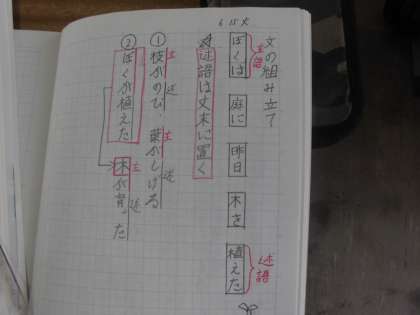 6 15 火
文の組み立て
主語 述語
ぼくは 庭に 昨日 木を 植えた
述語は文末に置く
主 述 主 述
① 枝がのび、葉がしげる
主 述
② ぼくが植えた 木が育った